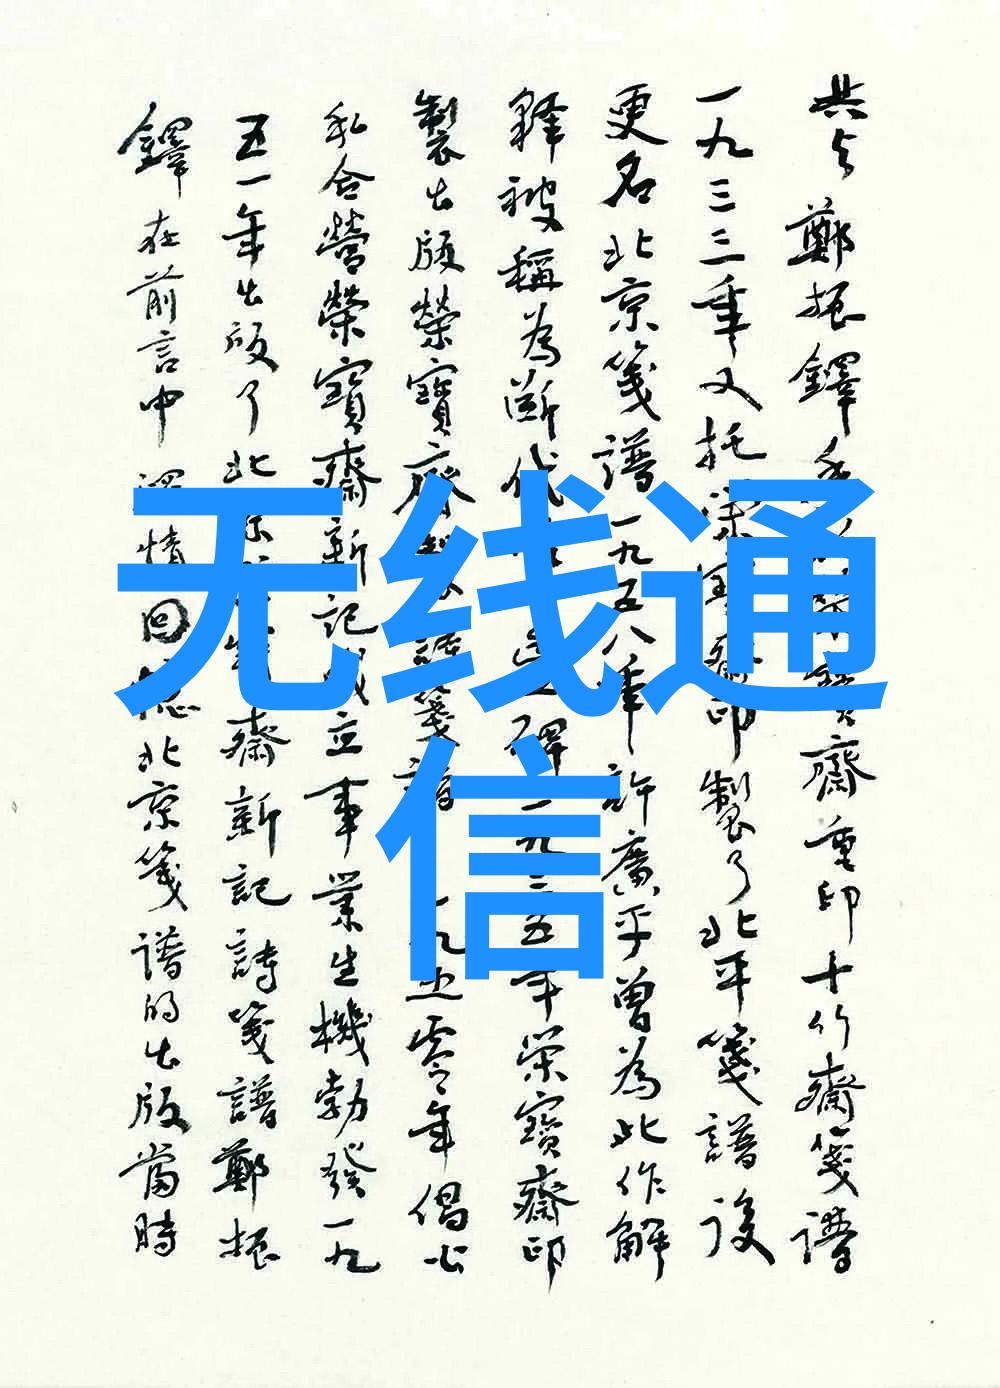 无线通
信
共与鄭振鐸寶齋重印十竹齋箋譜
一九三三年又托榮寶齋印製了北平箋譜後
更名北京箋譜一九五八年許廣平曾為此作解
釋被稱為斷代之碑一九三五年榮寶齋印
製出版榮寶齋詩箋譜一九五零年倡公
私合營榮寶齋新記成立事業生機勃發一九
五一年出版了北京齋新記詩箋譜鄭振
鐸在前言中深情回憶北京箋譜的出版當時